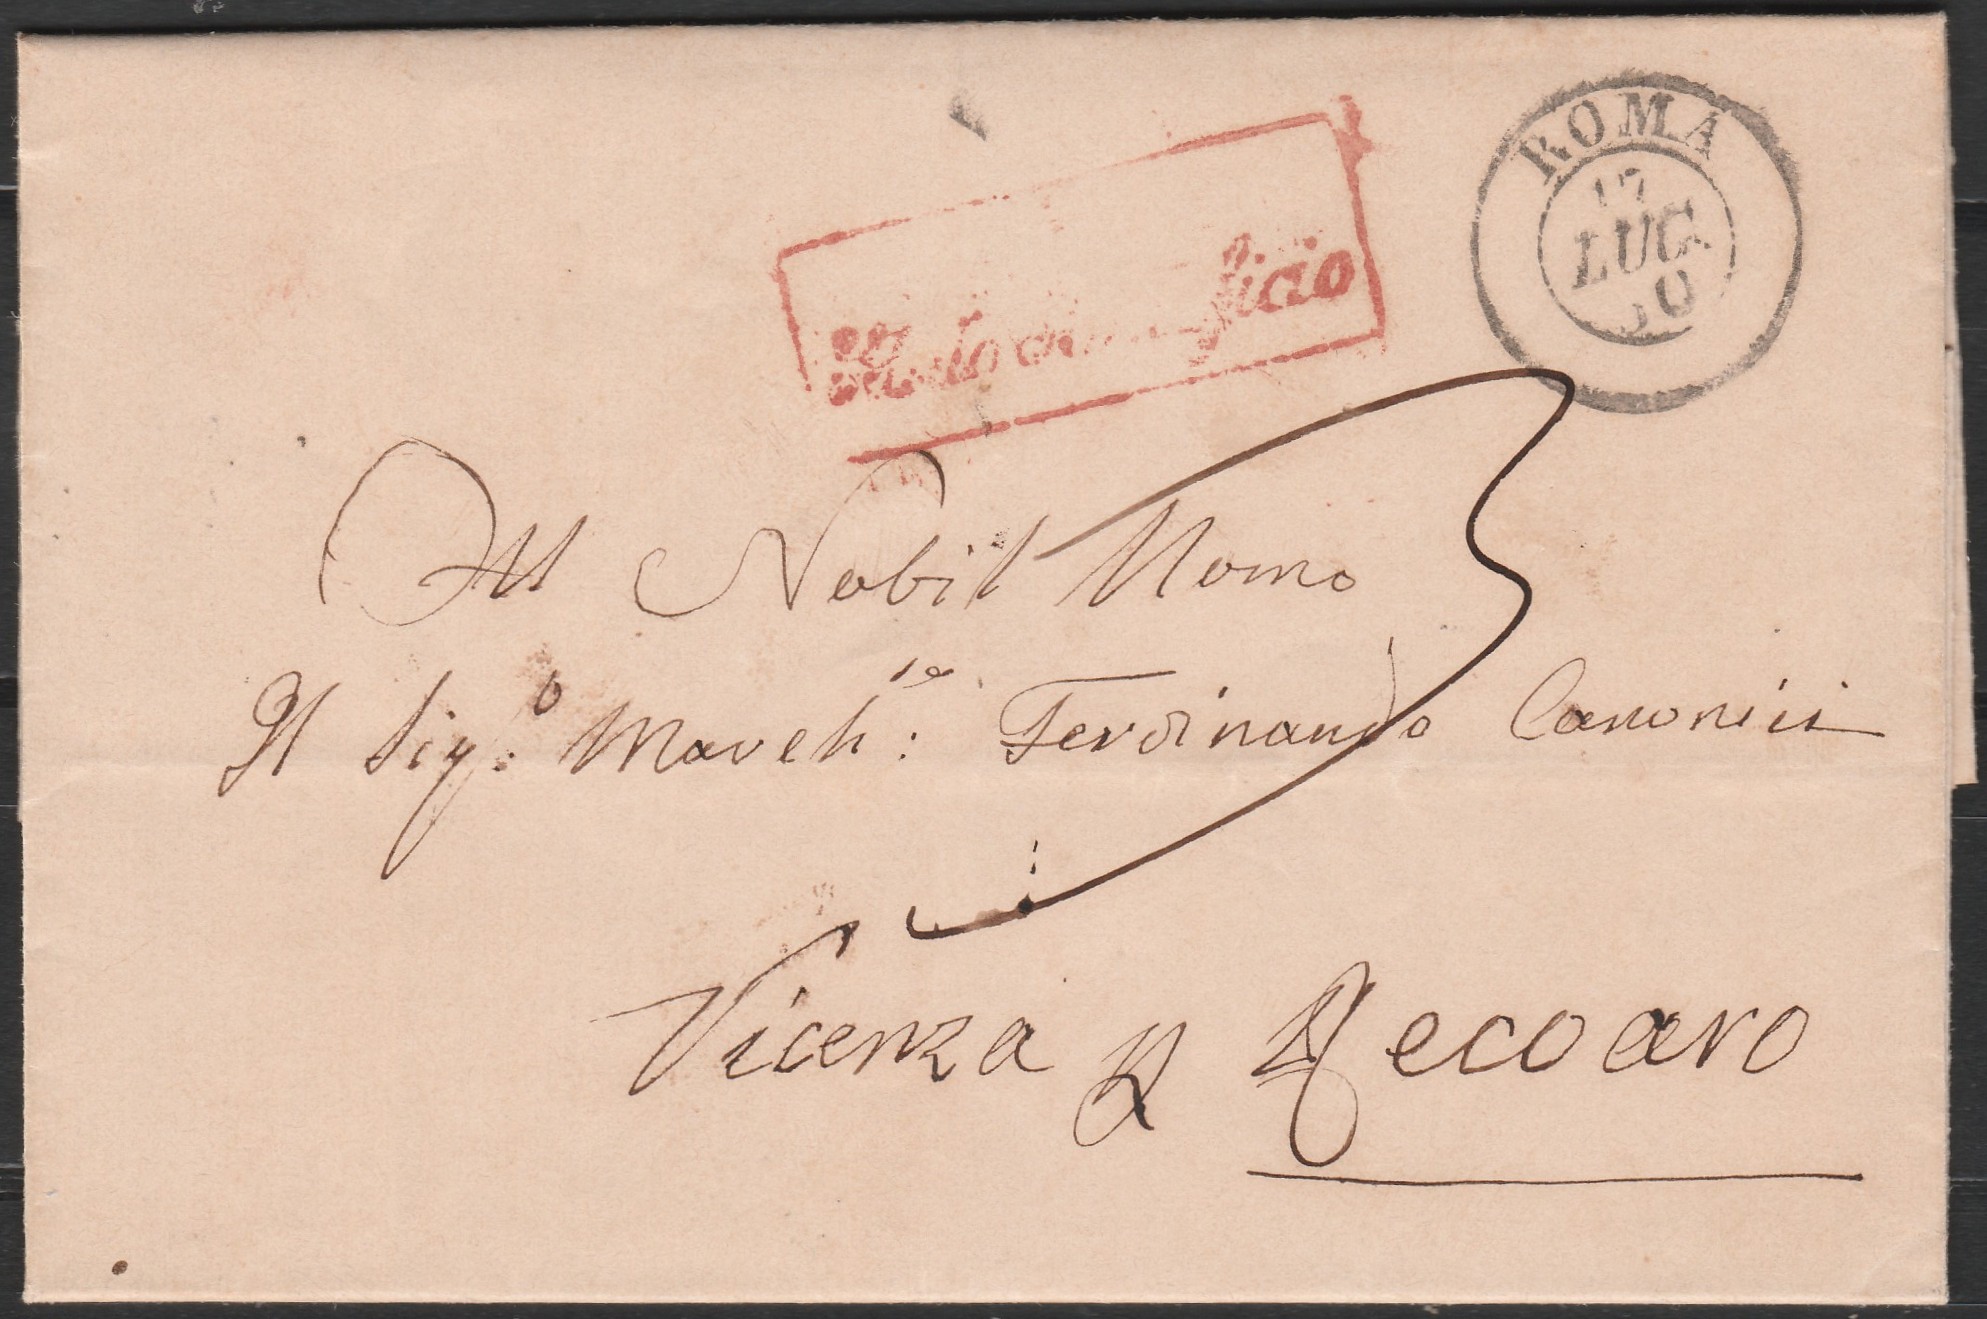 ROMA
17
LUG
50
Al Nobil Uomo
Il Sig.o March:se Ferdinando Canonici
3
Vicenza p Recoaro